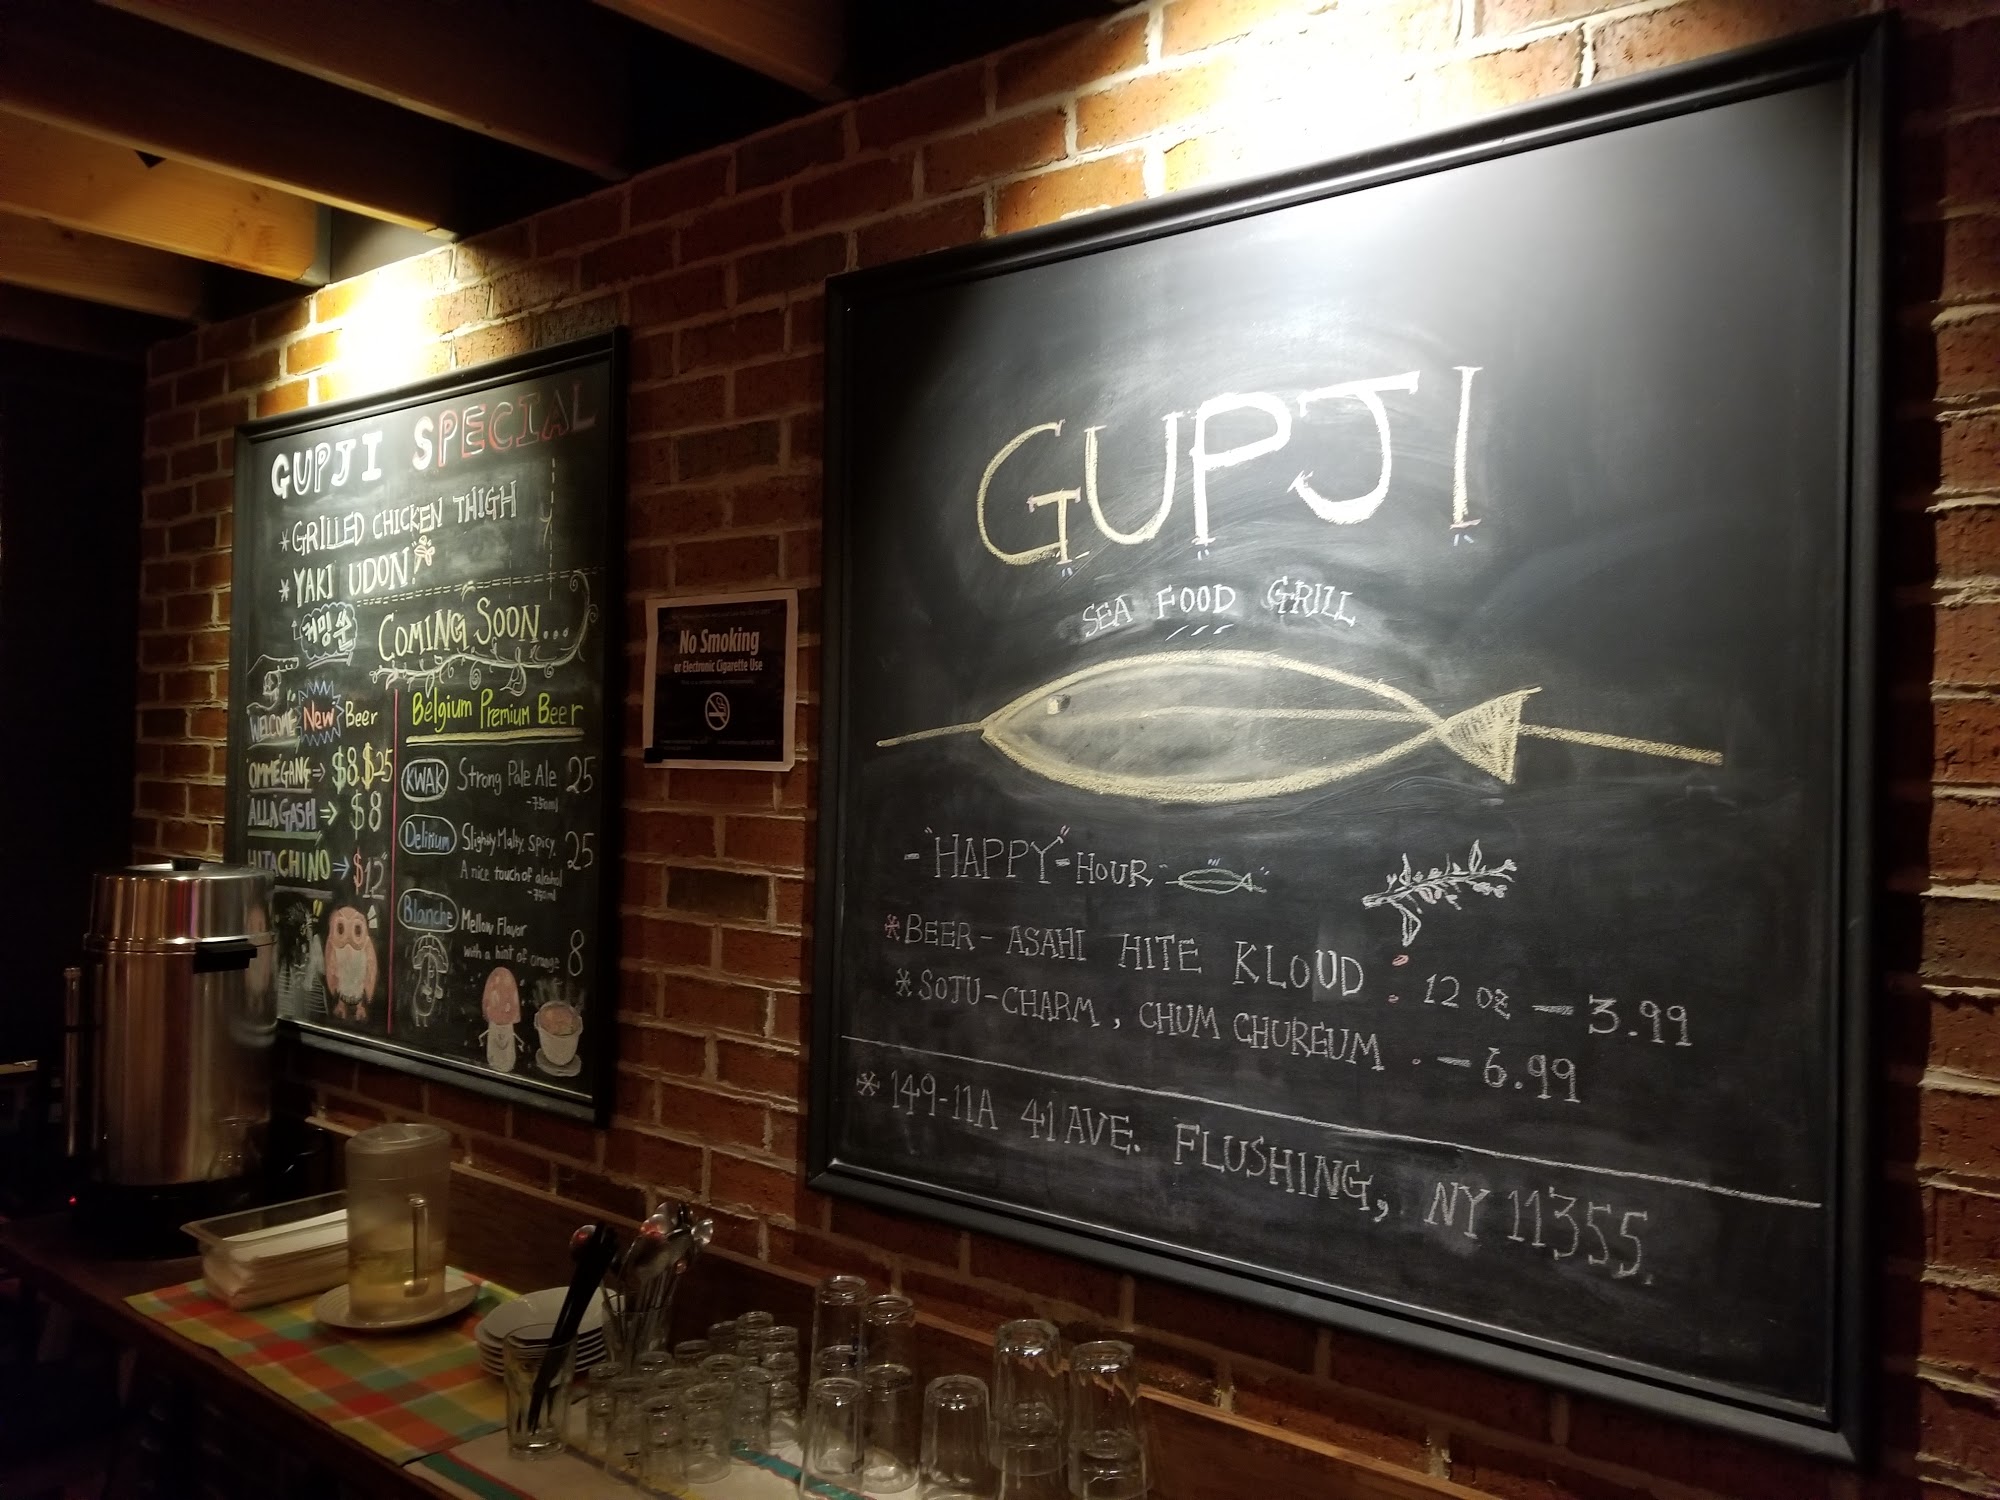 GUPJI SPECIAL
*GRILLED CHICKEN THIGH
*YAKI UDON
커밍쑨 COMING SOON...
WELCOME New Beer
OMMEGANG → $8.$25
ALLAGASH → $8
HITACHINO → $12
Belgium Premium Beer
KWAK Strong Pale Ale 25
-750ml
Delirium Slightly Malty, Spicy, 25
A nice touch of alcohol
-750ml
Blanche Mellow Flavor
with a hint of orange 8
No Smoking
or Electronic Cigarette Use
GUPJI
SEA FOOD GRILL
-"HAPPY"-HOUR-
*BEER- ASAHI HITE KLOUD . 12 oz — 3.99
*SOJU-CHARM, CHUM CHUREUM . — 6.99
* 149-11A 41 AVE. FLUSHING, NY 11355.